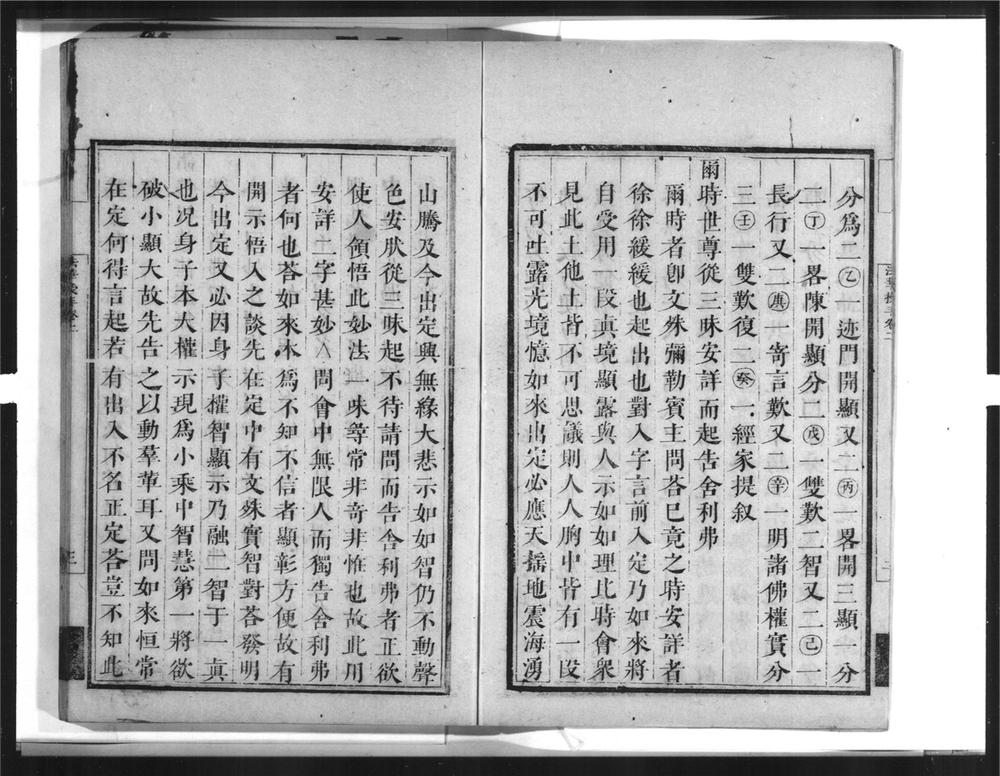 分爲二㊁一迹門開顯又二㊅一畧開三顯一分
二㊀一畧陳開顯分二㊉一雙歎二智又二二㊂一
長行又二㊄一寄言歎又二㊇一明諸佛權實分
三㊈一雙歎復二㊆一經家提叙
爾時世尊從三昧安詳而起告舍利弗
爾時者卽文殊彌勒賓主問荅巳竟之時安詳者
徐徐緩緩也起出也對入字言前入定乃如來將
自受用一段眞境顯露與人示如如理比時會衆
見此土他土皆不可思議則人人胸中皆有一段
不可吐露光境憶如來出定必應天搖地震海湧
山騰及今出定興無緣大悲示如如智仍不動聲
色安肰從三昧起不待請問而告舍利弗者正欲
使人領悟此妙法一味尋常非奇非惟也故此用
安詳二字甚妙△問會中無限人而獨告舍利弗
者何也荅如來本爲不知不信者顯彰方便故有
開示悟入之談先在定中有文殊實智對荅發明
今出定又必因身子權智顯示乃融二智于一眞
也况身子本大權示現爲小乘中智慧第一將欲
破小顯大故先告之以動羣蕐耳又問如來恒常
在定何得言起若有出入不名正定荅豈不知此